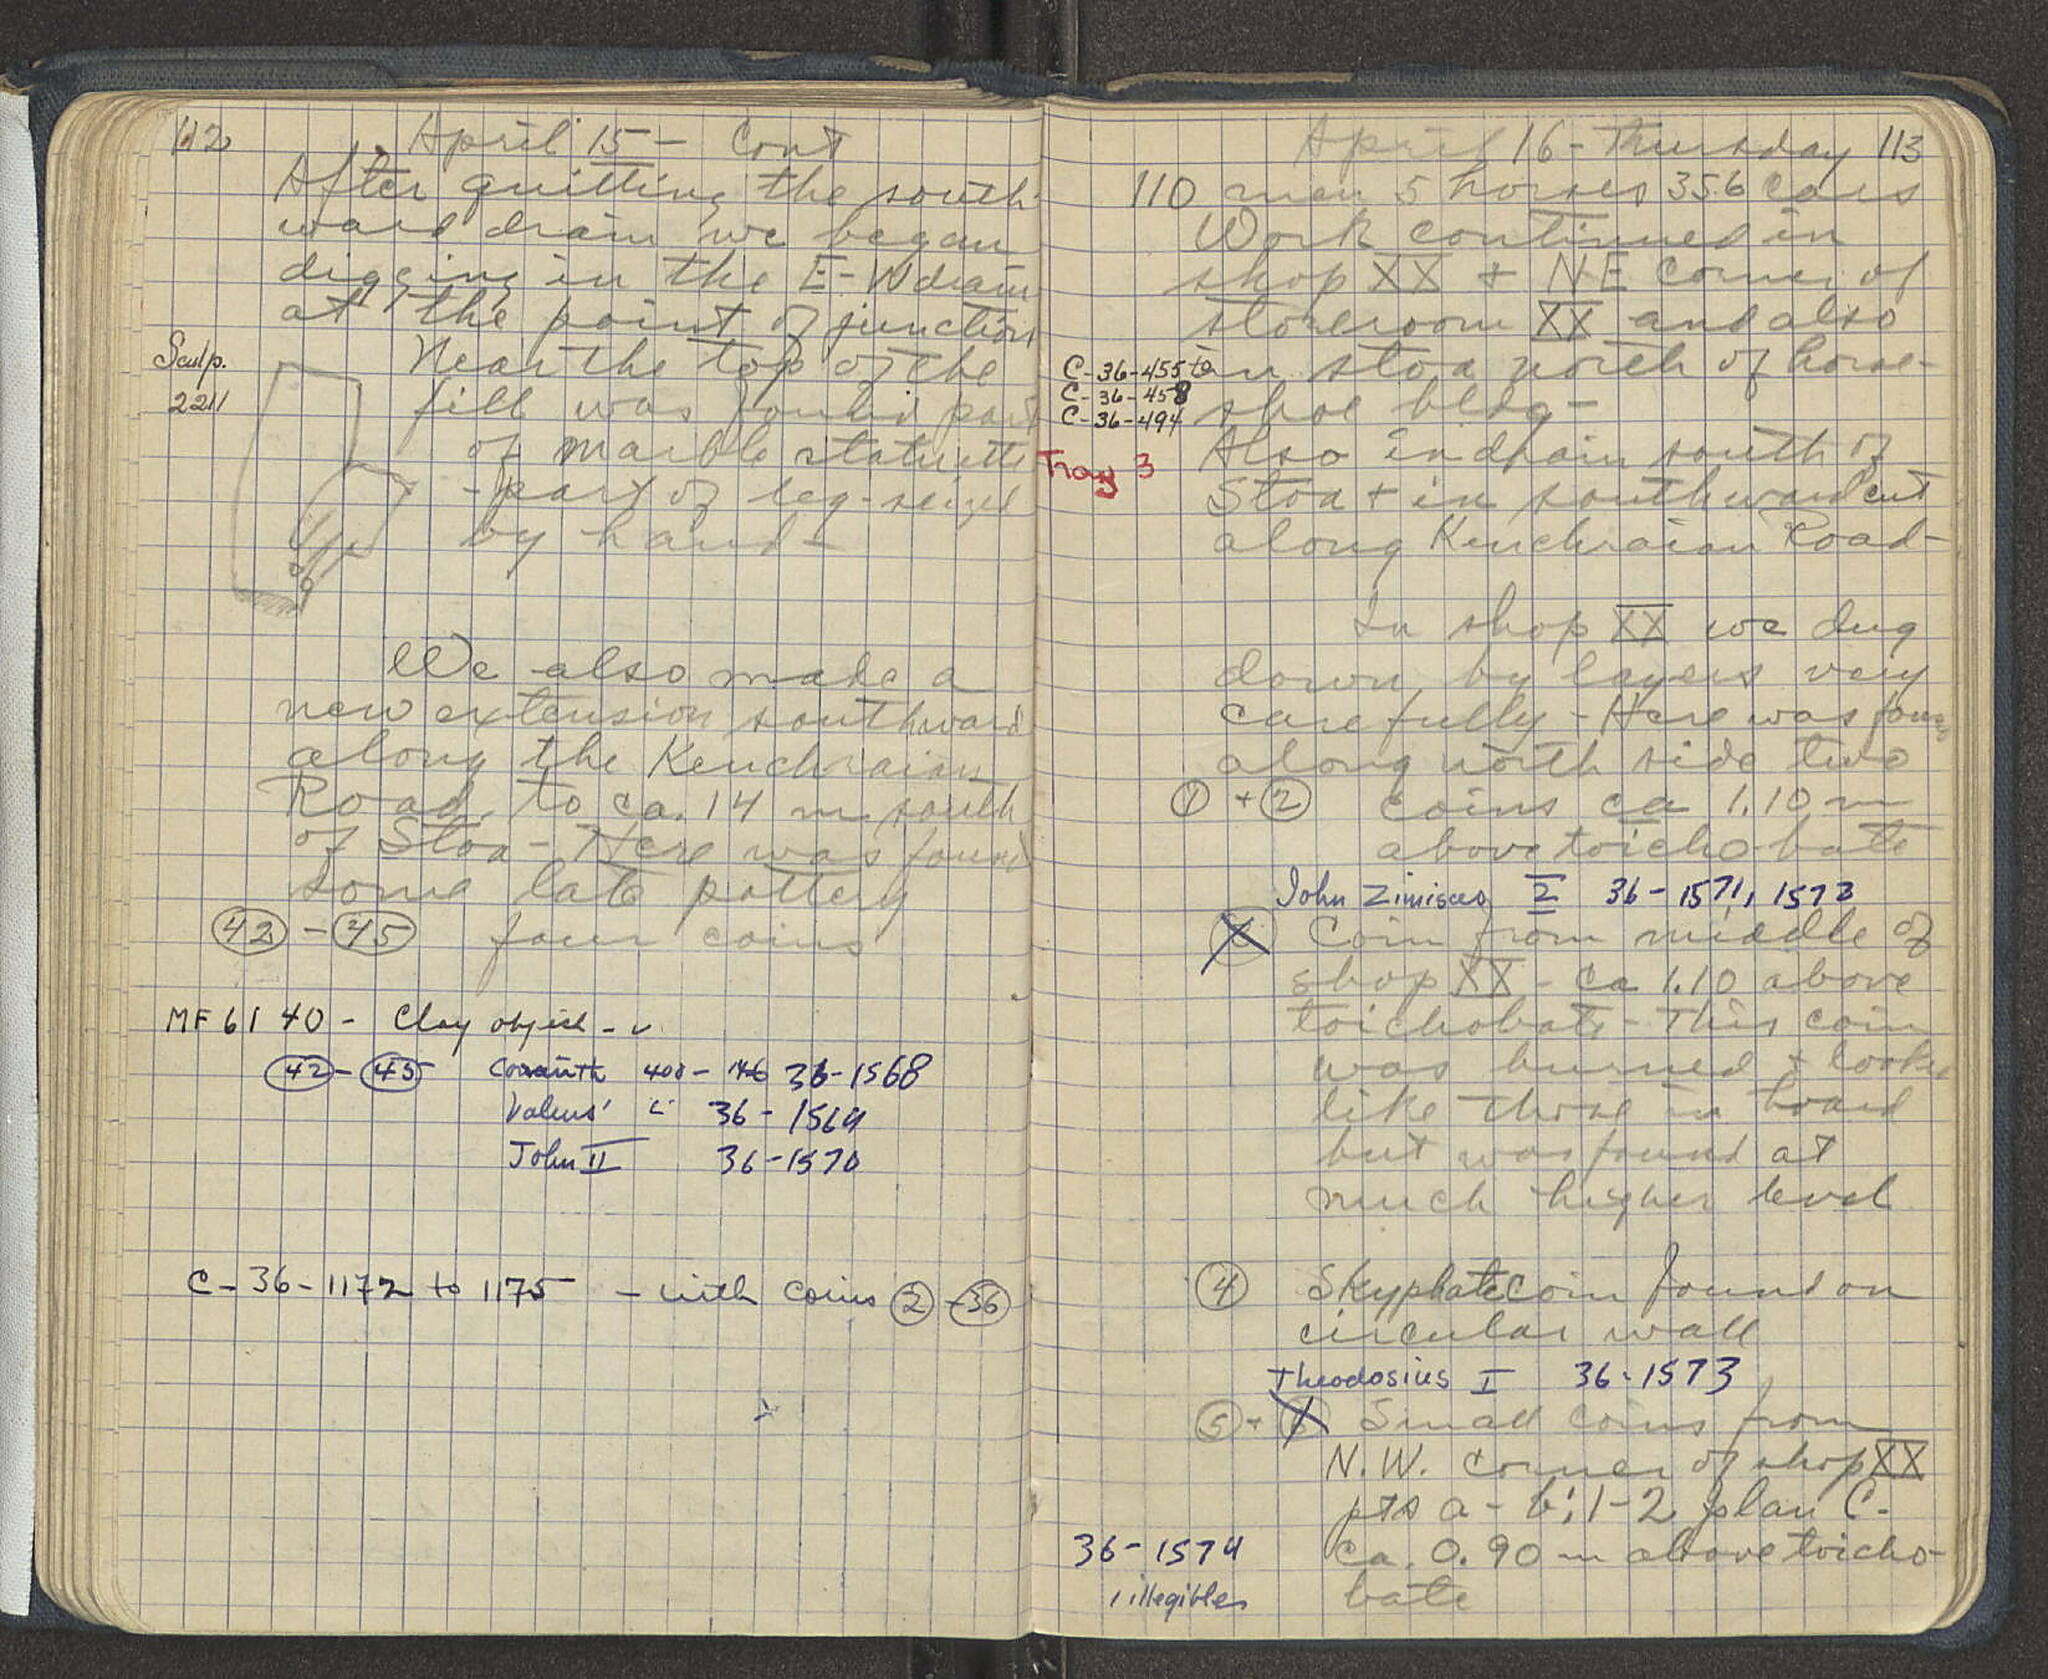 112 April 15 - Cont
After quitting the south-
ward drain we began
digging in the E-W drain
at the point of junction
Sculp.
2211
Near the top of the
fill was found part
of marble statuette
- part of leg - seized
by hand -
We also made a
new extension southward
along the Kenchraian
Road, to ca. 14 m south
of Stoa - Here was found
some late pottery
42 - 45 four coins
MF 6140 - Clay object -
42 - 45 Corinth 400 - 146 36-1568
Valens' 36 - 1569
John II 36-1570
C-36-1172 to 1175 - with coins 2 - 36
April 16 - Thursday 113
110 men 5 horses 356 cars
Work continued in
shop XX + NE corner of
storeroom XX and also
in stoa north of horse-
shoe bldg -
C-36-455 to
C-36-458
C-36-494
Tray 3
Also in drain south of
Stoa + in southward cut
along Kenchraian Road -
In shop XX we dug
down by layers very
carefully - Here was found
along north side two
1 + 2 coins ca 1.10 m
above toichobate
John Zimisces 2 36-1571, 1572
Coin from middle of
shop XX - ca 1.10 above
toichobate - This coin
was burned + looks
like those in hoard
but was found at
much higher level
4 Skyphate coin found on
circular wall
Theodosius I 36-1573
5 + 6 Small coins from
N.W. corner of shop XX
pts a - b; 1-2 plan C -
ca. 0.90 m above toicho-
bate
36-1574
1 illegible